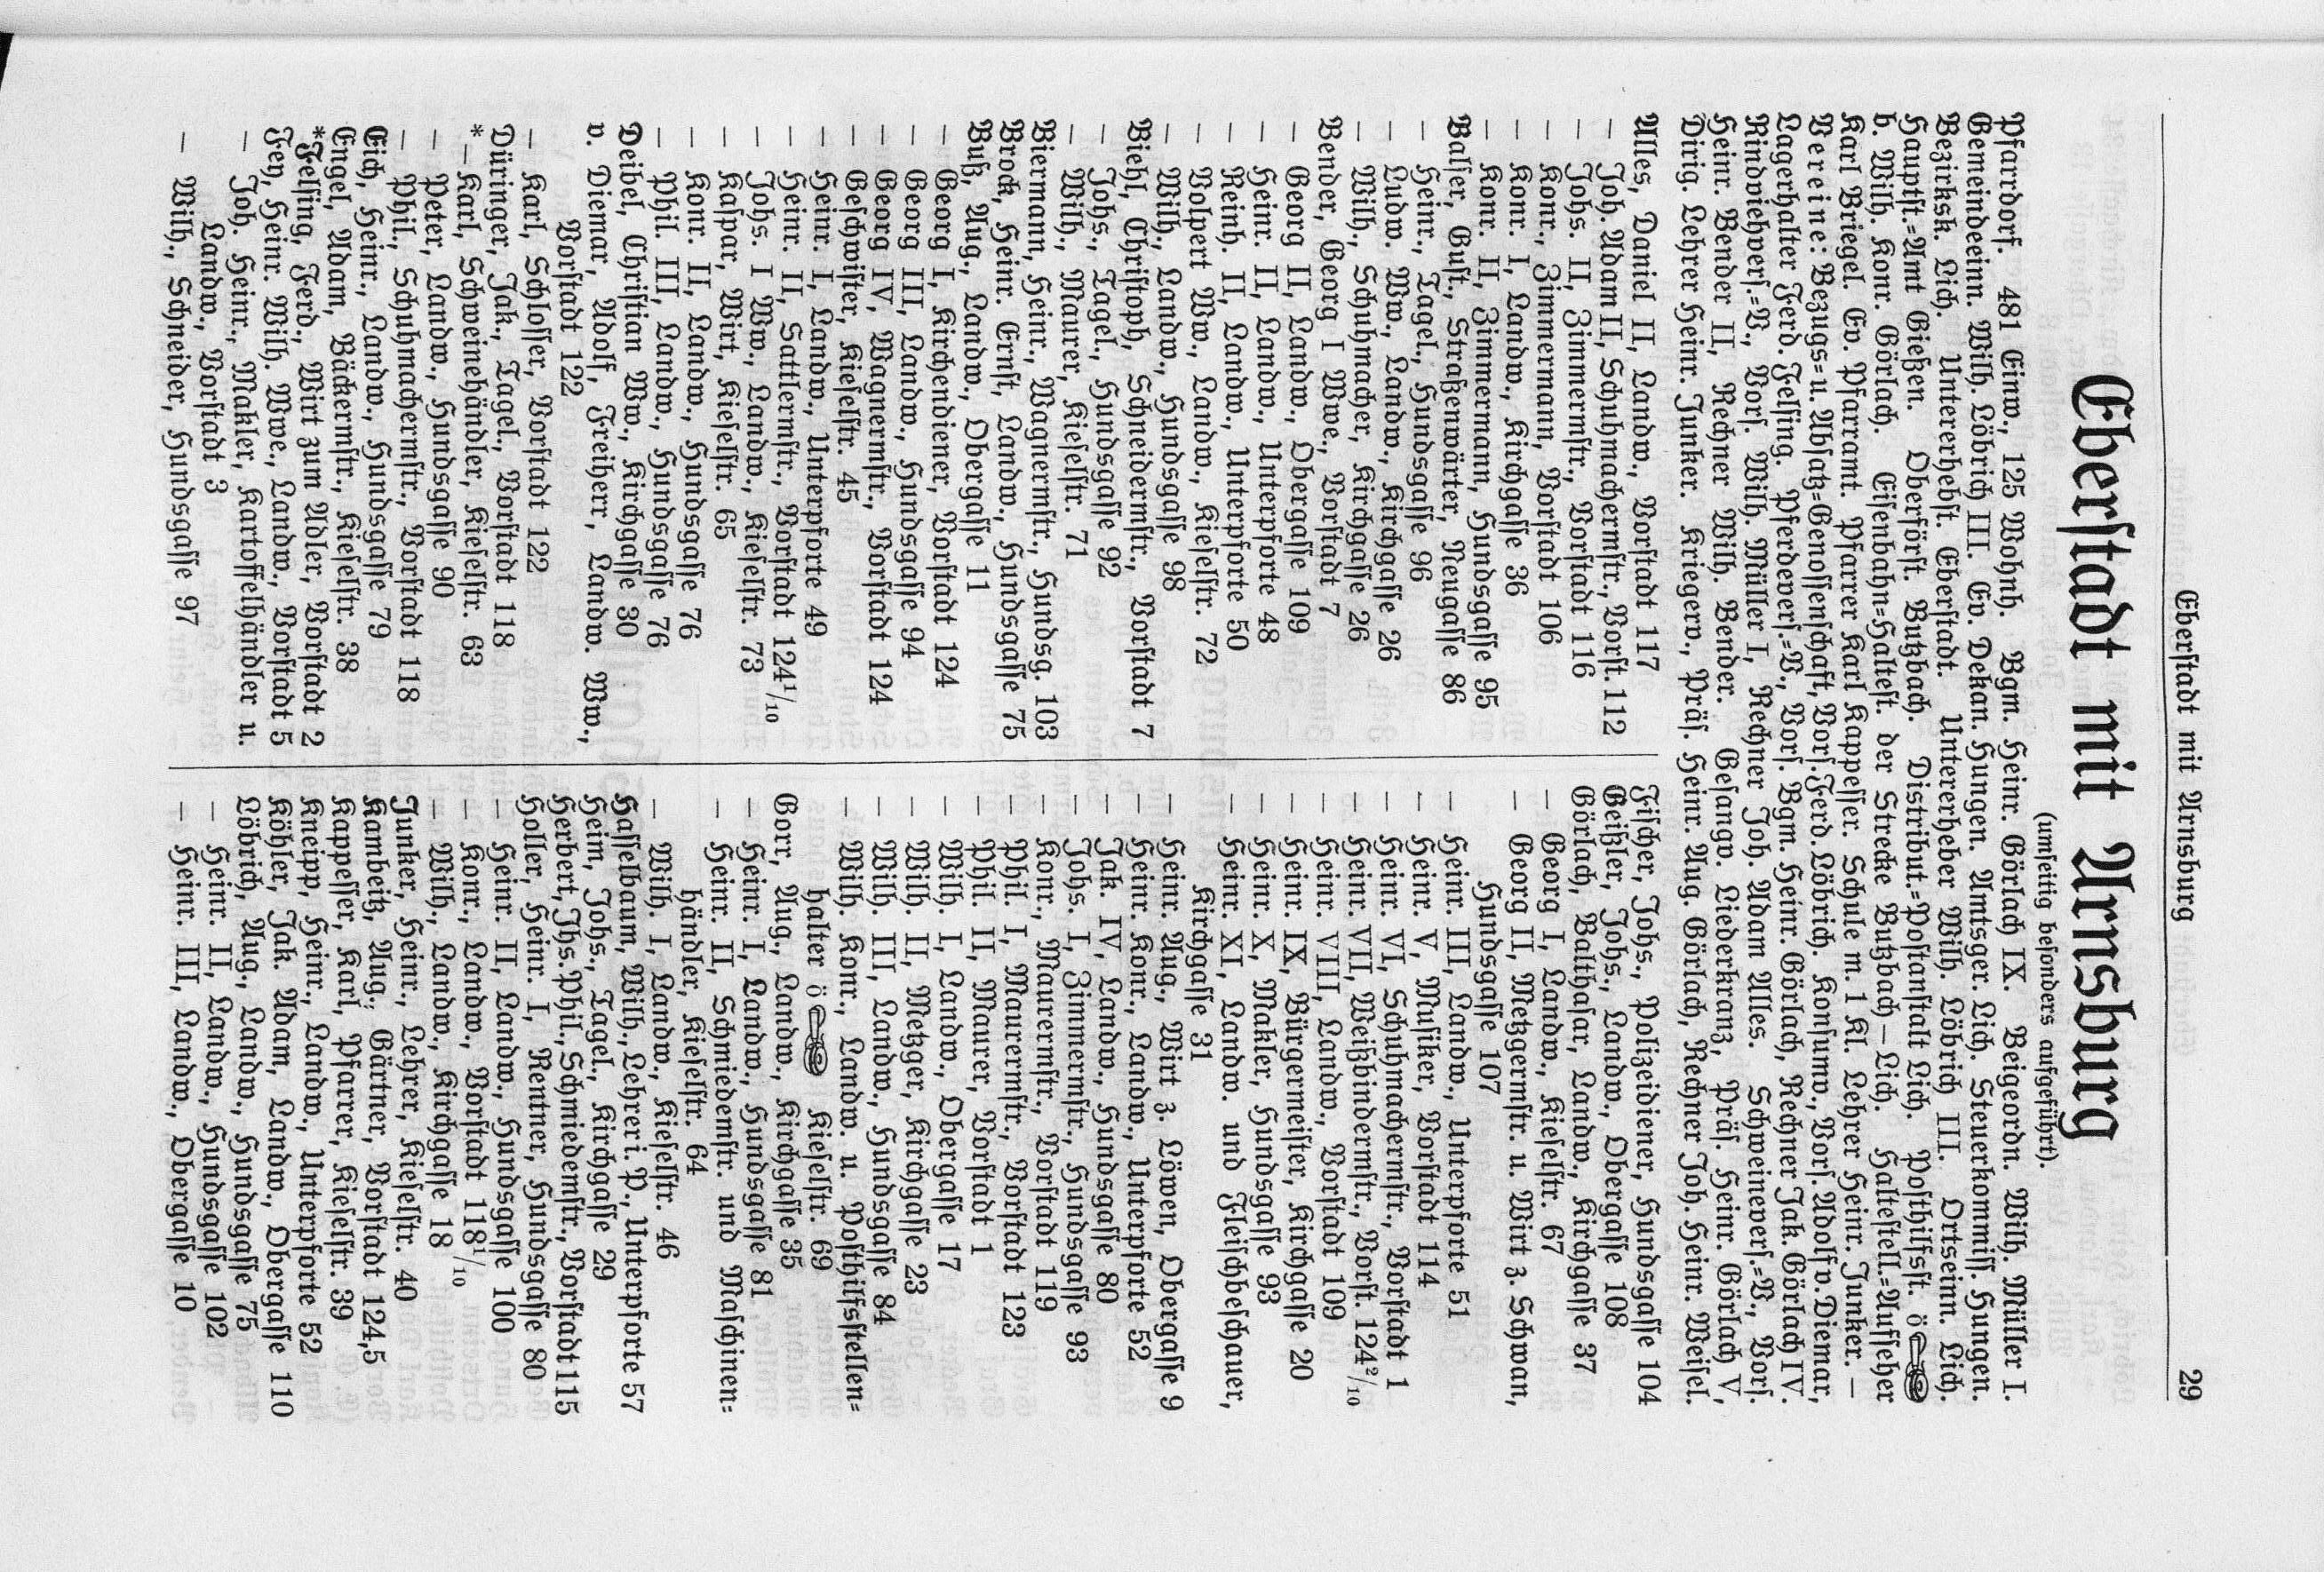 Eberstadt mit Arnsburg 29
Eberstadt mit Arnsburg
(umseitig besonders aufgeführt).
Pfarrdorf. 481 Einw., 125 Wohnh. Bgm. Heinr. Görlach IX. Beigeordn. Wilh. Müller I.
Gemeindeeinn. Wilh. Löbrich III. Ev. Dekan. Hungen. Amtsger. Lich. Steuerkommiss. Hungen.
Bezirksk. Lich. Untererhebst. Eberstadt. Untererheber Wilh. Löbrich III. Ortseinn. Lich.
Hauptst.=Amt Gießen. Oberförst. Butzbach. Distribut.=Postanstalt Lich. Posthilfsst. ö
b. Wilh. Konr. Görlach. Eisenbahn=Haltest. der Strecke Butzbach—Lich. Haltestell.=Aufseher
Karl Briegel. Ev. Pfarramt. Pfarrer Karl Kappesser. Schule m. 1 Kl. Lehrer Heinr. Junker. —
Vereine: Bezugs=u. Absatz=Genossenschaft, Vors. Ferd. Löbrich. Konsumv., Vors. Adolf v. Diemar,
Lagerhalter Ferd. Felsing. Pferdevers.=V., Vors. Bgm. Heinr. Görlach, Rechner Jak. Görlach IV.
Rindviehvers.=V., Vors. Wilh. Müller I, Rechner Joh. Adam Alles. Schweinevers.=V., Vors.
Heinr. Bender II, Rechner Wilh. Bender. Gesangv. Liederkranz, Präs. Heinr. Görlach V,
Dirig. Lehrer Heinr. Junker. Kriegerv., Präs. Heinr. Aug. Görlach, Rechner Joh. Heinr. Weisel.
Alles, Daniel II, Landw., Vorstadt 117
— Joh. Adam II, Schuhmachermstr., Vorst. 112
— Johs. II, Zimmermstr., Vorstadt 116
— Konr., Zimmermann, Vorstadt 106
— Konr. I, Landw., Kirchgasse 36
— Konr. II, Zimmermann, Hundsgasse 95
Balser, Gust., Straßenwärter, Neugasse 86
— Heinr., Tagel., Hundsgasse 96
— Ludw. Ww., Landw., Kirchgasse 26
— Wilh., Schuhmacher, Kirchgasse 26
Bender, Georg I Wwe., Vorstadt 7
— Georg II, Landw., Obergasse 109
— Heinr. II, Landw., Unterpforte 48
— Reinh. II, Landw., Unterpforte 50
— Volpert Ww., Landw., Kieselstr. 72
— Wilh., Landw., Hundsgasse 98
Biehl, Christoph, Schneidermstr., Vorstadt 7
— Johs., Tagel., Hundsgasse 92
— Wilh., Maurer, Kieselstr. 71
Biermann, Heinr., Wagnermstr., Hundsg. 103
Brock, Heinr. Ernst, Landw., Hundsgasse 75
Buß, Aug., Landw., Obergasse 11
— Georg I, Kirchendiener, Vorstadt 124
— Georg III, Landw., Hundsgasse 94
— Georg IV, Wagnermstr., Vorstadt 124
— Geschwister, Kieselstr. 45
— Heinr. I, Landw., Unterpforte 49
— Heinr. II, Sattlermstr., Vorstadt 124¹/₁₀
— Johs. I Ww., Landw., Kieselstr. 73
— Kaspar, Wirt, Kieselstr. 65
— Konr. II, Landw., Hundsgasse 76
— Phil. III, Landw., Hundsgasse 76
Deibel, Christian Ww., Kirchgasse 30
v. Diemar, Adolf, Freiherr, Landw. Ww.,
Vorstadt 122
— Karl, Schlosser, Vorstadt 122
Düringer, Jak., Tagel., Vorstadt 118
*— Karl, Schweinehändler, Kieselstr. 63
— Peter, Landw., Hundsgasse 90
— Phil., Schuhmachermstr., Vorstadt 118
Eich, Heinr., Landw., Hundsgasse 79
Engel, Adam, Bäckermstr., Kieselstr. 38
*Felsing, Ferd., Wirt zum Adler, Vorstadt 2
Fey, Heinr. Wilh. Wwe., Landw., Vorstadt 5
— Joh. Heinr., Makler, Kartoffelhändler u.
Landw., Vorstadt 3
— Wilh., Schneider, Hundsgasse 97
Fischer, Johs., Polizeidiener, Hundsgasse 104
Geißler, Johs., Landw., Obergasse 108
Görlach, Balthasar, Landw., Kirchgasse 37
— Georg I, Landw., Kieselstr. 67
— Georg II, Metzgermstr. u. Wirt z. Schwan,
Hundsgasse 107
— Heinr. III, Landw., Unterpforte 51
— Heinr. V, Musiker, Vorstadt 114
— Heinr. VI, Schuhmachermstr., Vorstadt 1
— Heinr. VII, Weißbindermstr., Vorst. 124²/₁₀
— Heinr. VIII, Landw., Vorstadt 109
— Heinr. IX, Bürgermeister, Kirchgasse 20
— Heinr. X, Makler, Hundsgasse 93
— Heinr. XI, Landw. und Fleischbeschauer,
Kirchgasse 31
— Heinr. Aug., Wirt z. Löwen, Obergasse 9
— Heinr. Konr., Landw., Unterpforte 52
— Jak. IV, Landw., Hundsgasse 80
— Johs. I, Zimmermstr., Hundsgasse 93
— Konr., Maurermstr., Vorstadt 119
— Phil. I, Maurermstr., Vorstadt 123
— Phil. II, Maurer, Vorstadt 1
— Wilh. I, Landw., Obergasse 17
— Wilh. II, Metzger, Kirchgasse 23
— Wilh. III, Landw., Hundsgasse 84
— Wilh. Konr., Landw. u. Posthilfsstellen=
halter ö Kieselstr. 69
Gorr, Aug., Landw., Kirchgasse 35
— Heinr. I, Landw., Hundsgasse 81
— Heinr. II, Schmiedemstr. und Maschinen=
händler, Kieselstr. 64
— Wilh. I, Landw., Kieselstr. 46
Hasselbaum, Wilh., Lehrer i. P., Unterpforte 57
Heim, Johs., Tagel., Kirchgasse 29
Herbert, Jhs. Phil., Schmiedemstr., Vorstadt 115
Holler, Heinr. I, Rentner, Hundsgasse 80
— Heinr. II, Landw., Hundsgasse 100
— Konr., Landw., Vorstadt 118¹/₁₀
— Wilh., Landw., Kirchgasse 18
Junker, Heinr., Lehrer, Kieselstr. 40
Kambeitz, Aug., Gärtner, Vorstadt 124,5
Kappesser, Karl, Pfarrer, Kieselstr. 39
Kneipp, Heinr., Landw., Unterpforte 52
Köhler, Jak. Adam, Landw., Obergasse 110
Löbrich, Aug., Landw., Hundsgasse 75
— Heinr. II, Landw., Hundsgasse 102
— Heinr. III, Landw., Obergasse 10